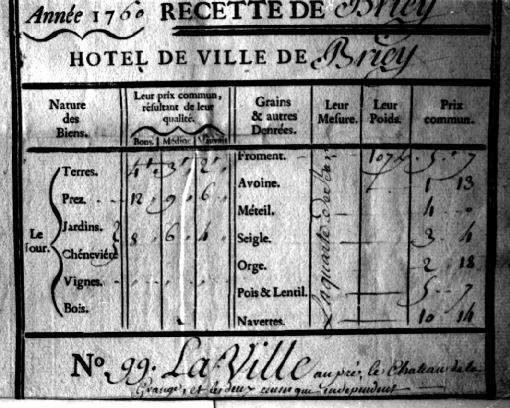 Année 1760 RECETTE DE Briey
HOTEL DE VILLE DE Briey
Nature des Biens. Leur prix commun, résultant de leur qualité. Grains & autres Denrées. Leur Mesure. Leur Poids. Prix commun.
Bons. Médioc. Mauvais
Le Jour.
Terres. 4 3 2 Froment. 107 5 7
Prez. 12 9 6 Avoine. 1 13
Jardins. Méteil. 4
Chénevière 8 6 4 Seigle. 3 4
Vignes. Orge. 2 18
Bois. Pois & Lentil. 5 7
Navettes. 10 14
La quarte
No. 99. La Ville au pré, le Chateau de la
Grange, et les deux cense que independent